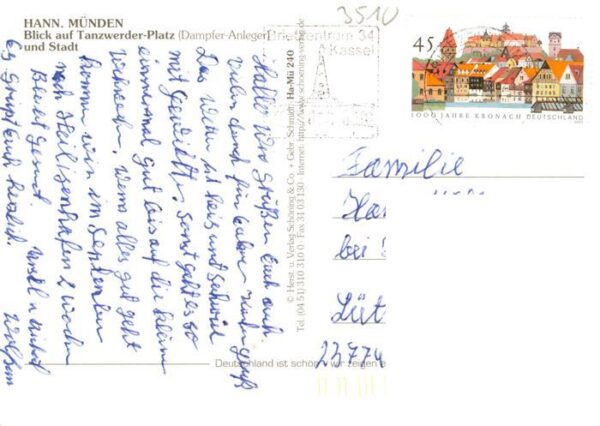 3510
HANN. MÜNDEN
Blick auf Tanzwerder-Platz (Dampfer-Anleger)
und Stadt
Briefzentrum 34
Kassel
45
1000 JAHRE KRONACH DEUTSCHLAND
© Herst. u. Verlag Schöning & Co. + Gebr. Schmidt Ha-Mü 240
Tel. (04 51) 310 310 0 · Fax 31 03 130 · Internet: http://www.schoening-verlag.de
Hallo Ihr Grüßen Euch auch
vielen dank für Euren Kartengruß
Das Wetter ist heiß und schwül
mit Gewitter, sonst geht es so
einnermal gut bis auf die kleinen
wenn alles gut geht
kommen wir im September
nach Heiligenhafen 2 Wochen
Bleibt Gesund
Es Grüßt Euch herzlich.
Familie
Ha
bei
Lüt
23774
Deutschland ist schön – wir zeigen e